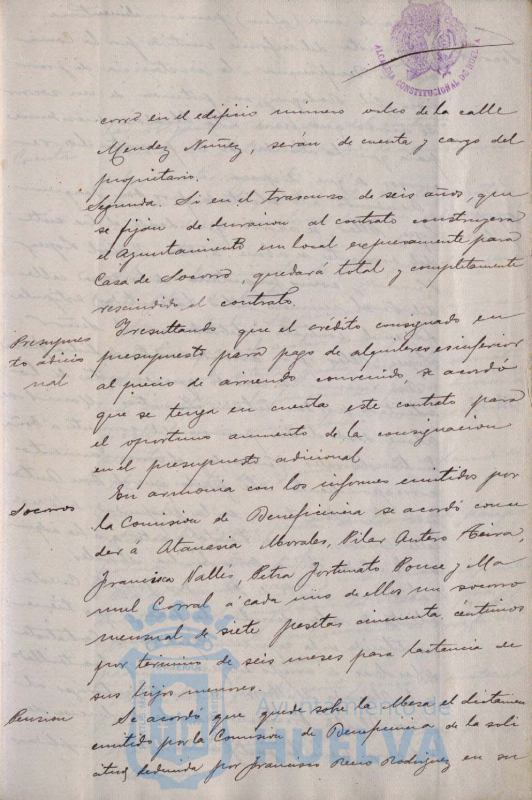 ALCALDIA CONSTITUCIONAL DE HUELVA
corro en el edificio número ocho de la calle
Mendez Nuñez, serán de cuenta y cargo del
propietario.
Segunda. Si en el trascurso de seis años, que
se fijan de duracion al contrato construyera
el Ayuntamiento un local expresamente para
Casa de Socorro, quedará total y completamente
rescindido el contrato.
Presupues
to adicio
nal
Y resultando que el crédito consignado en
presupuesto para pago de alquileres es inferior
al precio de arriendo convenido, se acordó
que se tenga en cuenta este contrato para
el oportuno aumento de la consignacion
en el presupuesto adicional
Socorros
En armonia con los informes emitidos por
la Comision de Beneficencia se acordó conce
der á Atanasia Morales, Pilar Antero
Francisca Vallés, Petra Fortunato Ponce y Ma
nuel Corral á cada uno de ellos un socorro
mensual de siete pesetas cincuenta céntimos
por término de seis meses para lactancia de
sus hijos menores.
Pension
Se acordó que quede sobre la Mesa el dictamen
emitido por la Comision de Beneficencia de la soli
citud deducida por Francisco Rodriguez en su
Ayuntamiento de
HUELVA